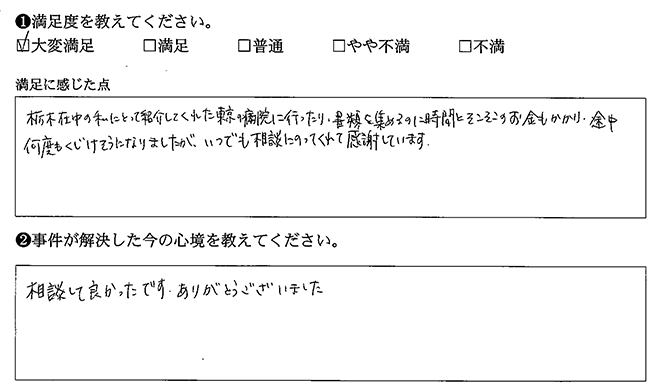 ❶満足度を教えてください。
☑大変満足 □満足 □普通 □やや不満 □不満
満足に感じた点
栃木在中の私にとって紹介してくれた東京の病院に行ったり、書類を集めるのに時間とそこそこのお金もかかり、途中
何度もくじけそうになりましたが、いつでも相談にのってくれて感謝しています.
❷事件が解決した今の心境を教えてください。
相談して良かったです. ありがとうございました